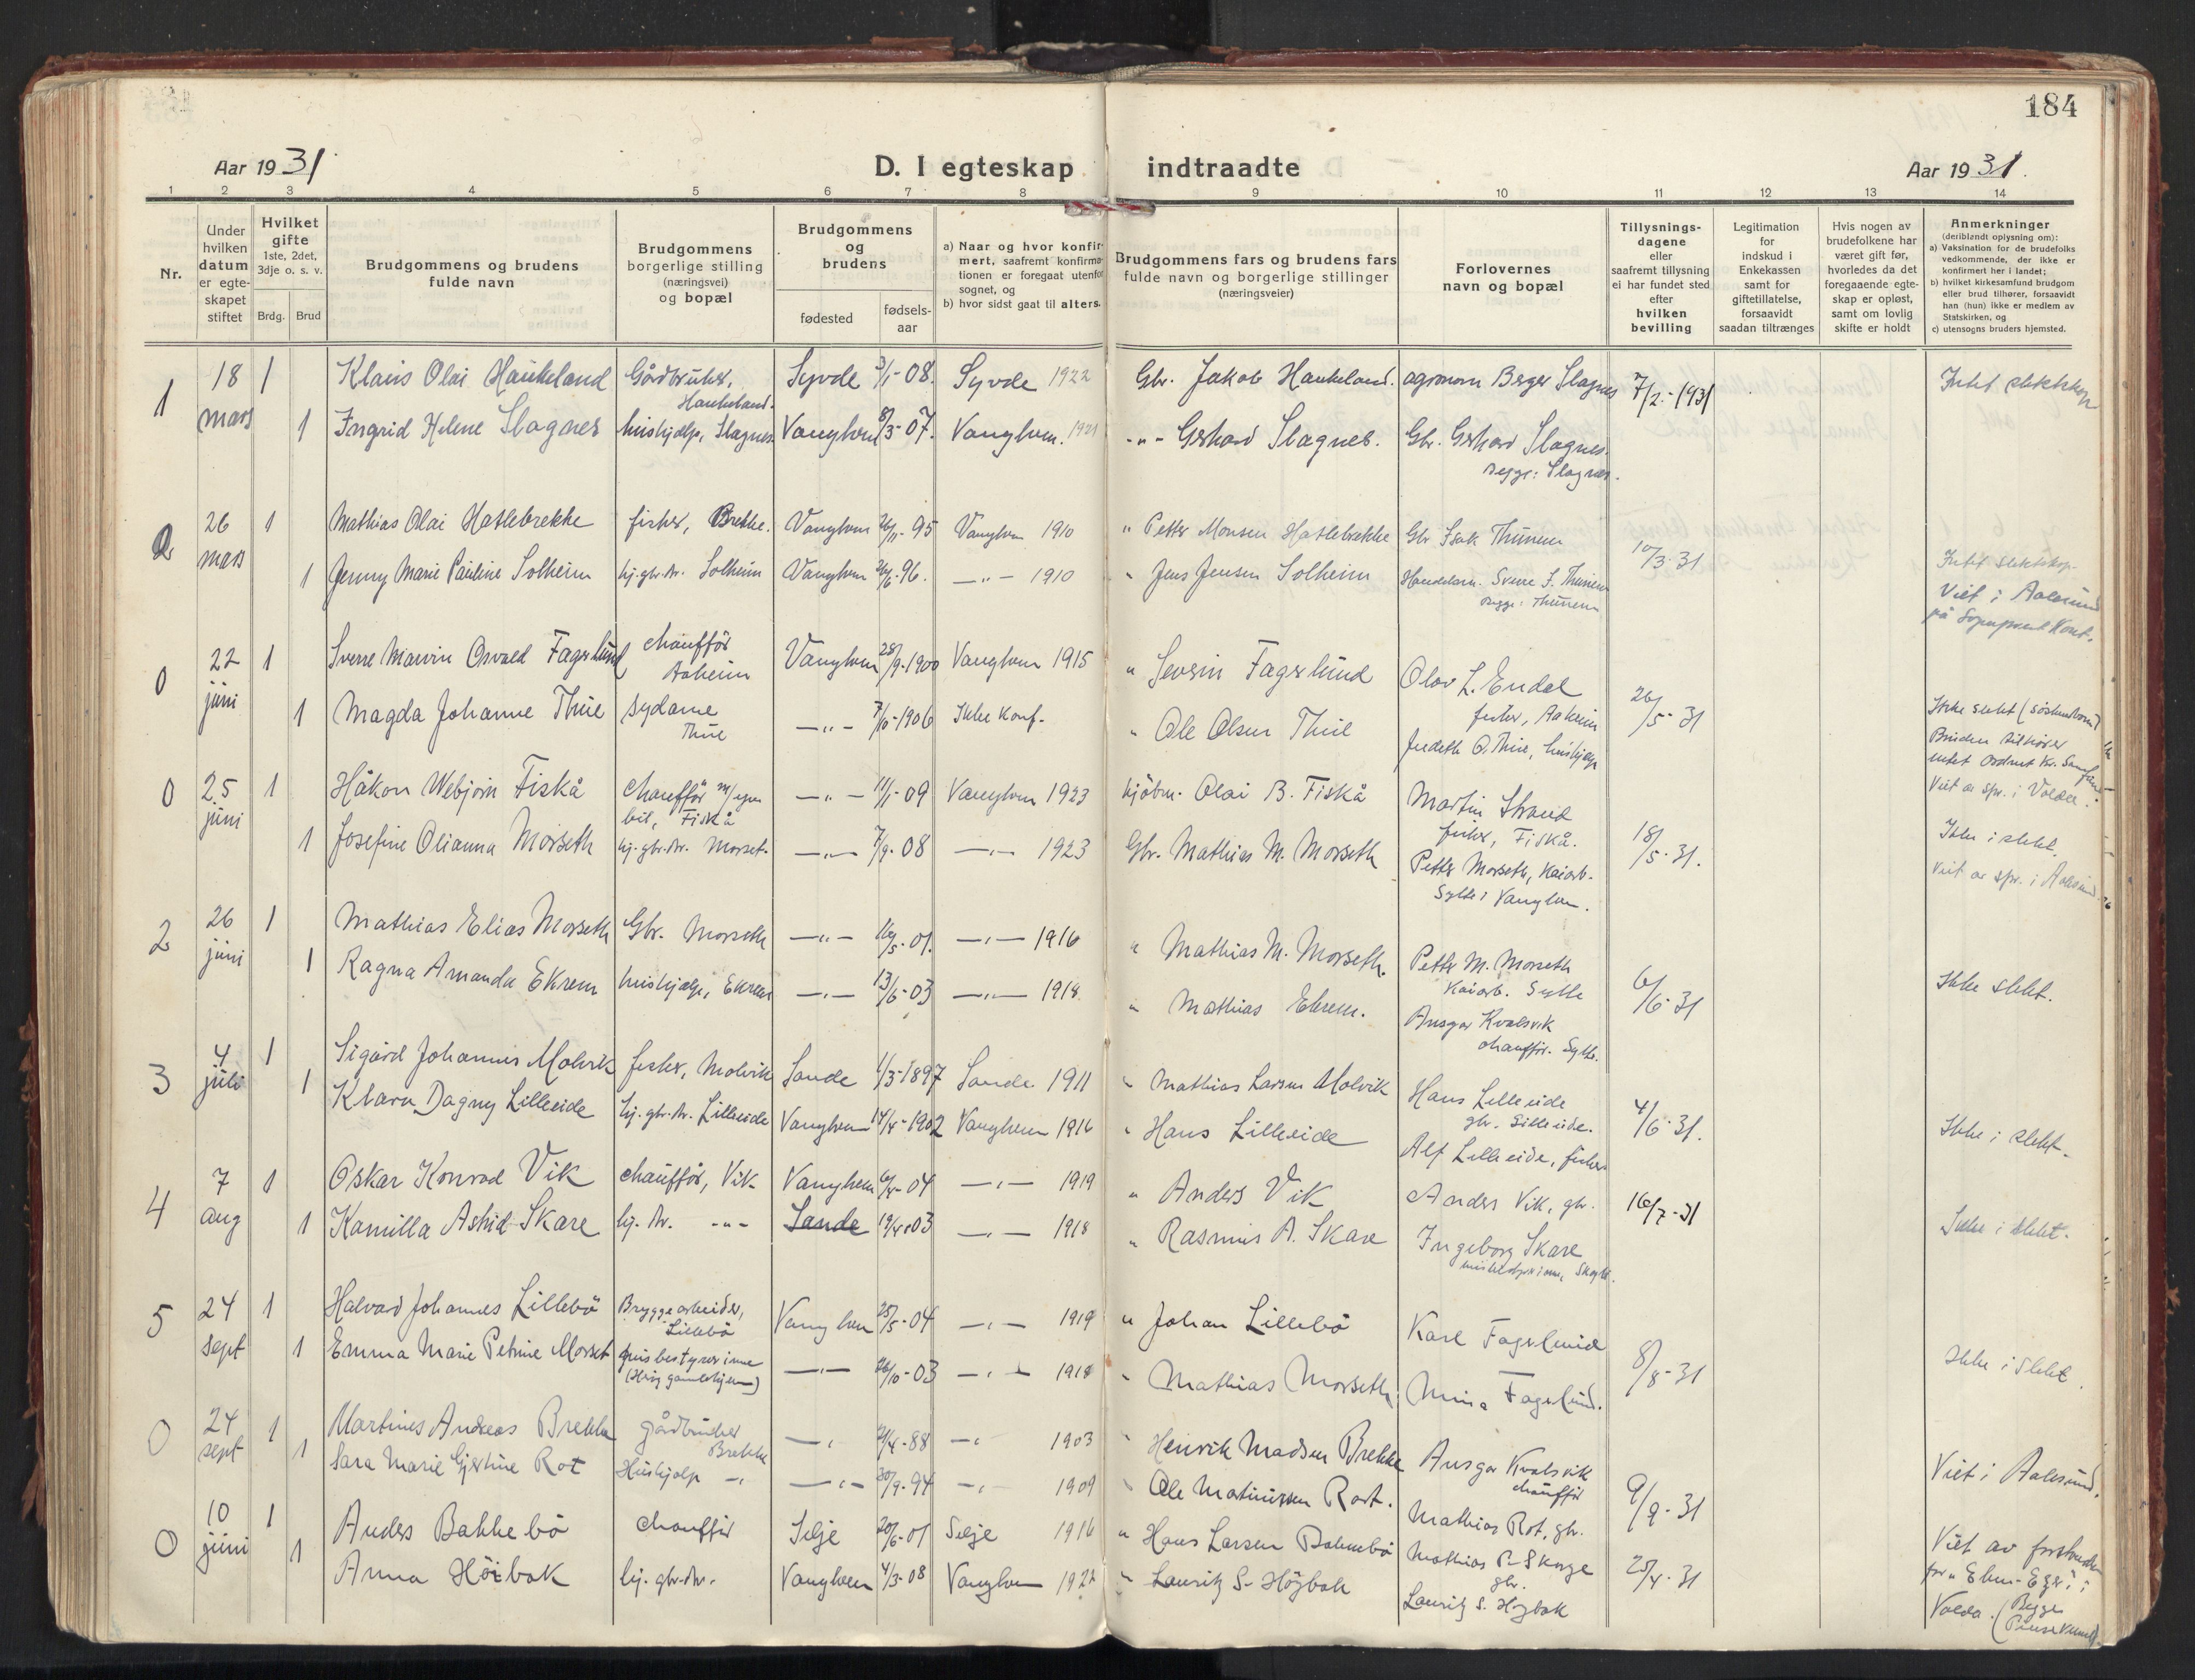 184
Aar 1931
D. I egteskap indtraadte
Aar 1931.
1 2 3 4 5 6 7 8 9 10 11 12 13 14
Nr.
Under hvilken datum er egteskapet stiftet
Hvilket gifte 1ste, 2det, 3dje o. s. v.
Brdg. Brud
Brudgommens og brudens fulde navn
Brudgommens borgerlige stilling (næringsvei) og bopæl
Brudgommens og brudens
fødested
fødsels-aar
a) Naar og hvor konfirmert, saafremt konfirmationen er foregaat utenfor sognet, og
b) hvor sidst gaat til alters.
Brudgommens fars og brudens fars fulde navn og borgerlige stillinger (næringsveier)
Forlovernes navn og bopæl
Tillysningsdagene eller saafremt tillysning ei har fundet sted efter hvilken bevilling
Legitimation for indskud i Enkekassen samt for giftetillatelse, forsaavidt saadan tiltrænges
Hvis nogen av brudefolkene har været gift før, hvorledes da det foregaaende egteskap er opløst, samt om lovlig skifte er holdt
Anmerkninger (deriblandt oplysning om):
a) Vaksination for de brudefolks vedkommende, der ikke er konfirmert her i landet;
b) hvilket kirkesamfund brudgom eller brud tilhører, forsaavidt han (hun) ikke er medlem av Statskirken, og
c) utensogns bruders hjemsted.
1 18 mars 1 Klaus Olai Haukeland Gårdbruker, Haukeland. Syvde 3/1-08. Syvde 1922 Gbr. Jakob Haukeland. agronom Berger Slagnes 7/2-1931 Intet slektskap
1 Ingrid Helene Slagnes hushjælp, Slagnes Vanylven 8/3-07. Vanylven. 1921 -"- Gerhard Slagnes. Gbr. Gerhard Slagnes. Begge: Slagnes.
2 26 mars 1 Mathias Olai Hatlebrekke fisker, Brekke. Vanylven 26/11-95 Vanylven 1910 " Petter Monsen Hatlebrekke Gbr Isak Thunem 10/3-31
1 Jenny Marie Pauline Solheim hj. gbr. dtr. Solheim Vanylven 26/6-96. -"- 1910 " Jens Jensen Solheim Sverre I. Thunem Begge: Thunem Intet slektskap
Viet i Aalesund på
0 22 juni 1 Sverre Marvin Osvald Fagerlund chauffør Aaheim Vanylven 28/9-1900 Vanylven 1915 " Severin Fagerlund Olav L. Endal fisker, Aaheim 26/5-31
1 Magda Johanne Thue sydame Thue -"- 7/10-1906 Ikke konf. " Ole Olsen Thue Judith O. Thue, hushjælp Ikke slekt (søskenbarn) Bruden tilhører intet ordnet kr. Samfund
Viet av spr. i Volda.
0 25 juni 1 Håkon Webjørn Fiskå chauffør m/egen bil, Fiskå -"- 11/1-09 Vanylven 1923 kjøbm. Olai B. Fiskå Martin Strand fisker, Fiskå. 18/5-31.
1 Josefine Olianna Morseth hj. gbr. dtr. Morset. -"- 7/9-08 -"- 1923 Gbr. Mathias M. Morseth Petter Morseth, Kaiarb. Sylte i Vanylven. Ikke i slekt.
Viet av spr. i Aalesund
2 26 juni 1 Mathias Elias Morseth Gbr. Morseth -"- 16/5-01. -"- 1916 " Mathias M. Morseth. Petter M. Morseth Kaiarb. Sylte 6/6-31
1 Ragna Amanda Ekrem hushjælp, Ekrem -"- 13/6-03 -"- 1918. " Mathias Ekrem. Ansgar Kvalsvik chauffør. Sylte. Ikke slekt.
3 4 juli 1 Sigurd Johannes Molvik fisker, Molvik Sande 1/3-1897 Sande 1911 " Mathias Larsen Molvik Hans Lilleeide gbr. Lilleeide. 4/6-31.
1 Klara Dagny Lilleeide hj. gbr. dtr. Lilleeide Vanylven 14/4-1902 Vanylven 1916 " Hans Lilleeide Alf Lilleeide, fisker Ikke i slekt.
4 7 aug 1 Oskar Konrad Vik chauffør, Vik Vanylven 6/4-04 -"- 1919 " Anders Vik Anders Vik, gbr. 16/7-31
1 Kamilla Astrid Skare hj. dtr. -"- Sande 19/4-03 -"- 1918 " Rasmus A. Skare Ingeborg Skare Ikke i slekt.
5 24 sept 1 Halvard Johannes Lillebø Bryggearbeider, Lillebø Vanylven 25/5-04 -"- 1919 " Johan Lillebø Karl Fagerlund 8/8-31
1 Emma Marie Petrine Morset husbestyrerinne -"- 26/10-03 -"- 1918 " Mathias Morseth Mina Fagerlund. Ikke i slekt.
0 24 sept 1 Martines Andreas Brekke gårdbruker Brekke -"- 2/4-88 -"- 1903 " Henrik Madsen Brekke Ansgar Kvalsvik chauffør 9/9-31
1 Sara Marie Gjertine Rot Hushjelp -"- -"- 30/9-94 -"- 1909 " Ole Martinussen Rot. Mathias Rot, gbr. Viet i Aalesund.
0 10 juni 1 Anders Bakkebø chauffør Selje 20/6-01 Selje 1916 " Hans Larsen Bakkebø Mathias P. Skorge gbr. 25/4-31
1 Anna Høibak hj. gbr. dtr. Vanylven 4/3-08 Vanylven 1922 " Lauritz S. Høybak Lauritz S. Høybak Viet av forstander for i Volda. (Begge